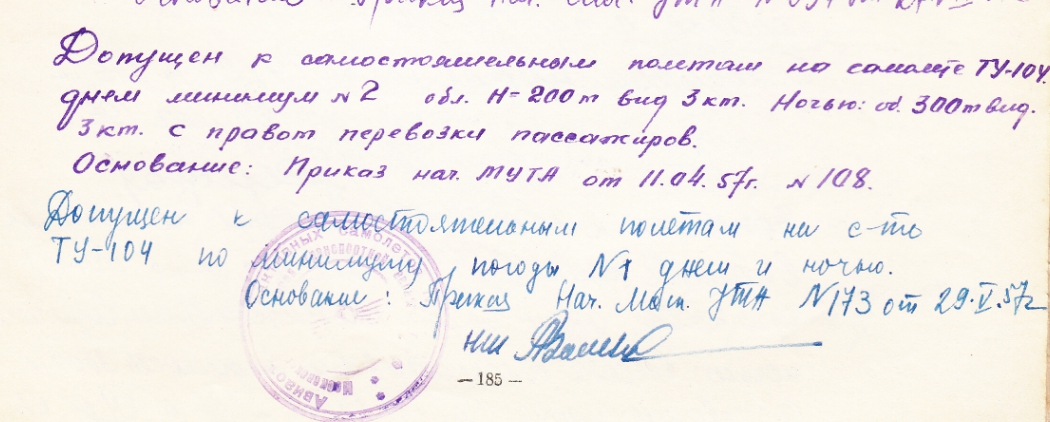 Приказ Нач. УТА
Допущен к самостоятельным полетам на самолете ТУ-104.
днем минимум №2 обл. Н=200m вид 3кт. Ночью: об. 300m вид.
3кт. с правом перевозки пассажиров.
Основание: Приказ нач. МУТА от 11.04.57г. №108.
Допущен к самостоятельным полетам на с-те
ТУ-104 по минимуму погоды №1 днем и ночью.
Основание: Приказ Нач. Моск. УТА №173 от 29.V.57г
НШ
— 185 —